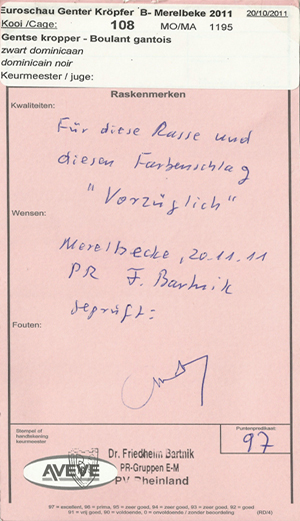 Euroschau Genter Kröpfer B- Merelbeke 2011 20/10/2011
Kooi /Cage: 108 MO/MA 1195
Gentse kropper - Boulant gantois
zwart dominicaan
dominicain noir
Keurmeester / juge:
Raskenmerken
Kwaliteiten:
Für diese Rasse und
diesen Farbenschlag
"Vorzüglich"
Wensen:
Merelbecke, 20.11.11
PR F. Bartnik
geprüft:
Fouten:
Stempel of
handtekening
keurmeester
Puntenpredikaat:
97
Dr. Friedhelm Bartnik
PR-Gruppen E-M
PV Rheinland
AVEVE
97 = excellent, 96 = prima, 95 = zeer goed, 94 = zeer goed, 93 = zeer goed, 92 = goed
91 = vrij goed, 90 = voldoende, 0 = onvoldoende / zonder beoordeling (RD/4)